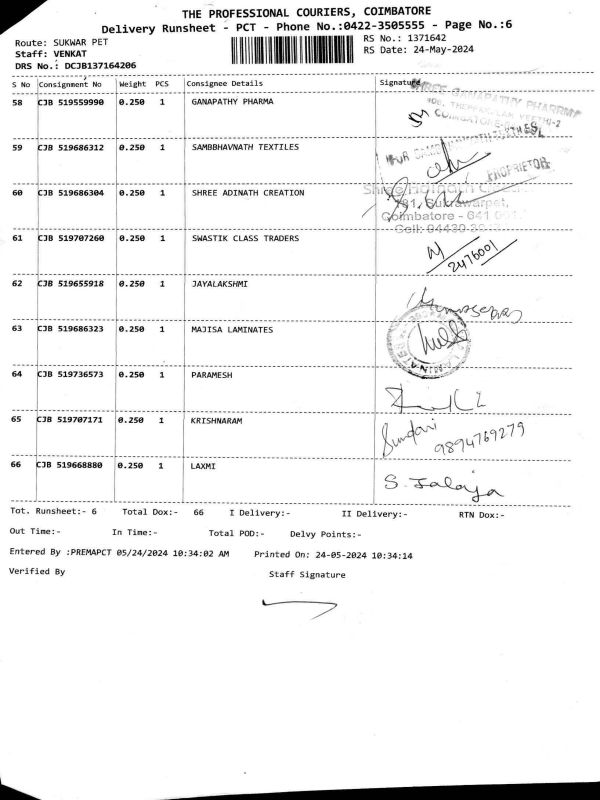 THE PROFESSIONAL COURIERS, COIMBATORE
Delivery Runsheet - PCT - Phone No.:0422-3505555 - Page No.:6
Route: SUKWAR PET
RS No.: 1371642
Staff: VENKAT
RS Date: 24-May-2024
DRS No.: DCJB137164206
S No Consignment No Weight PCS Consignee Details Signature
58 CJB 519559990 0.250 1 GANAPATHY PHARMA
SHREE GANAPATHY PHARMA
COIMBATORE
59 CJB 519686312 0.250 1 SAMBBHAVNATH TEXTILES
PROPRIETOR
60 CJB 519686304 0.250 1 SHREE ADINATH CREATION
Sukrawarpet,
Coimbatore - 641 001.
Cell: 94430
61 CJB 519707260 0.250 1 SWASTIK CLASS TRADERS
2476001
62 CJB 519655918 0.250 1 JAYALAKSHMI
63 CJB 519686323 0.250 1 MAJISA LAMINATES
64 CJB 519736573 0.250 1 PARAMESH
65 CJB 519707171 0.250 1 KRISHNARAM
Sundari
9894769279
66 CJB 519668880 0.250 1 LAXMI
S. Jalaja
Tot. Runsheet:- 6 Total Dox:- 66 I Delivery:- II Delivery:- RTN Dox:-
Out Time:- In Time:- Total POD:- Delvy Points:-
Entered By :PREMAPCT 05/24/2024 10:34:02 AM Printed On: 24-05-2024 10:34:14
Verified By Staff Signature